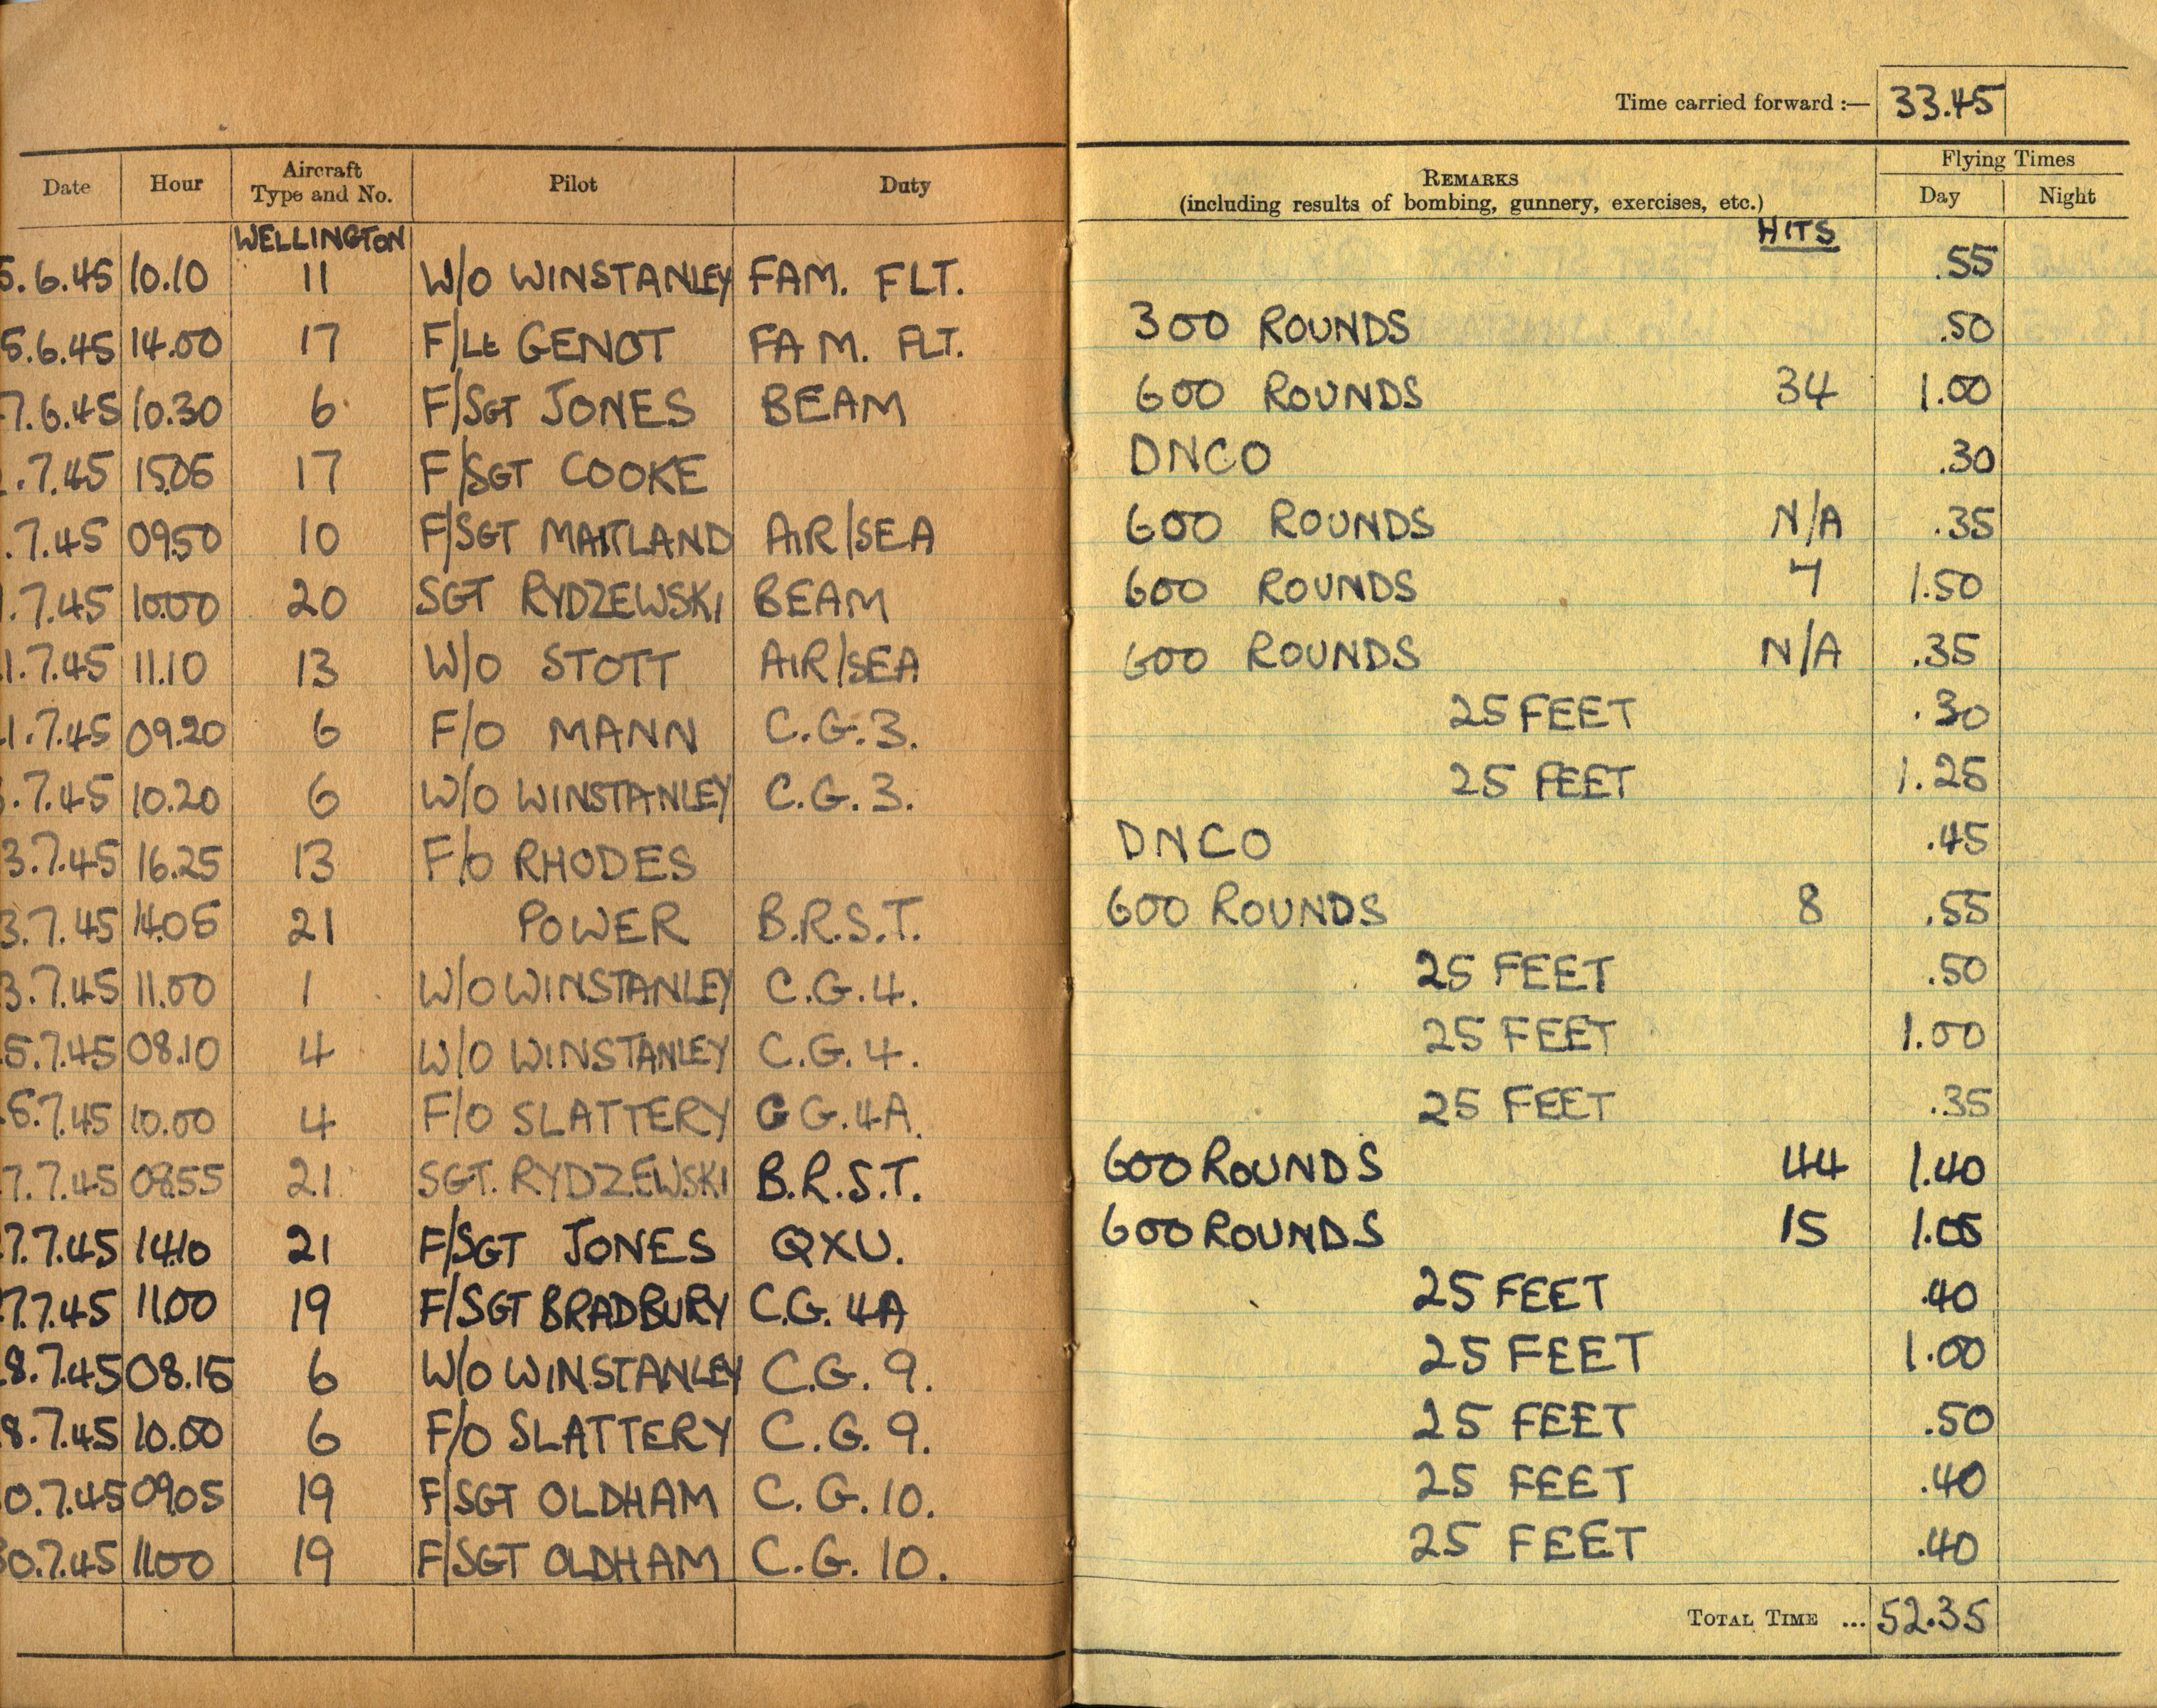 Time carried forward :— 33.45
Date Hour Aircraft Type and No. Pilot Duty REMARKS (including results of bombing, gunnery, exercises, etc.) Flying Times Day Night
WELLINGTON HITS
5.6.45 10.10 11 W/O WINSTANLEY FAM. FLT. .55
5.6.45 14.00 17 F/Lt GENOT FAM. FLT. 300 ROUNDS .50
7.6.45 10.30 6 F/SGT JONES BEAM 600 ROUNDS 34 1.00
.7.45 15.05 17 F/SGT COOKE DNCO .30
.7.45 09.50 10 F/SGT MAITLAND AIR/SEA 600 ROUNDS N/A .35
.7.45 10.00 20 SGT RYDZEWSKI BEAM 600 ROUNDS 7 1.50
1.7.45 11.10 13 W/O STOTT AIR/SEA 600 ROUNDS N/A .35
1.7.45 09.20 6 F/O MANN C.G.3. 25 FEET .30
.7.45 10.20 6 W/O WINSTANLEY C.G.3. 25 FEET 1.25
3.7.45 16.25 13 F/O RHODES DNCO .45
3.7.45 14.05 21 POWER B.R.S.T. 600 ROUNDS 8 .55
3.7.45 11.00 1 W/O WINSTANLEY C.G.4. 25 FEET .50
5.7.45 08.10 4 W/O WINSTANLEY C.G.4. 25 FEET 1.00
5.7.45 10.00 4 F/O SLATTERY C G.4A. 25 FEET .35
7.7.45 08.55 21 SGT. RYDZEWSKI B.R.S.T. 600 ROUNDS 44 1.40
7.7.45 14.10 21 F/SGT JONES QXU. 600 ROUNDS 15 1.05
7.7.45 11.00 19 F/SGT BRADBURY C.G. 4A 25 FEET .40
8.7.45 08.15 6 W/O WINSTANLEY C.G. 9. 25 FEET 1.00
8.7.45 10.00 6 F/O SLATTERY C.G. 9. 25 FEET .50
0.7.45 09.05 19 F/SGT OLDHAM C.G.10. 25 FEET .40
0.7.45 11.00 19 F/SGT OLDHAM C.G. 10. 25 FEET .40
TOTAL TIME ... 52.35